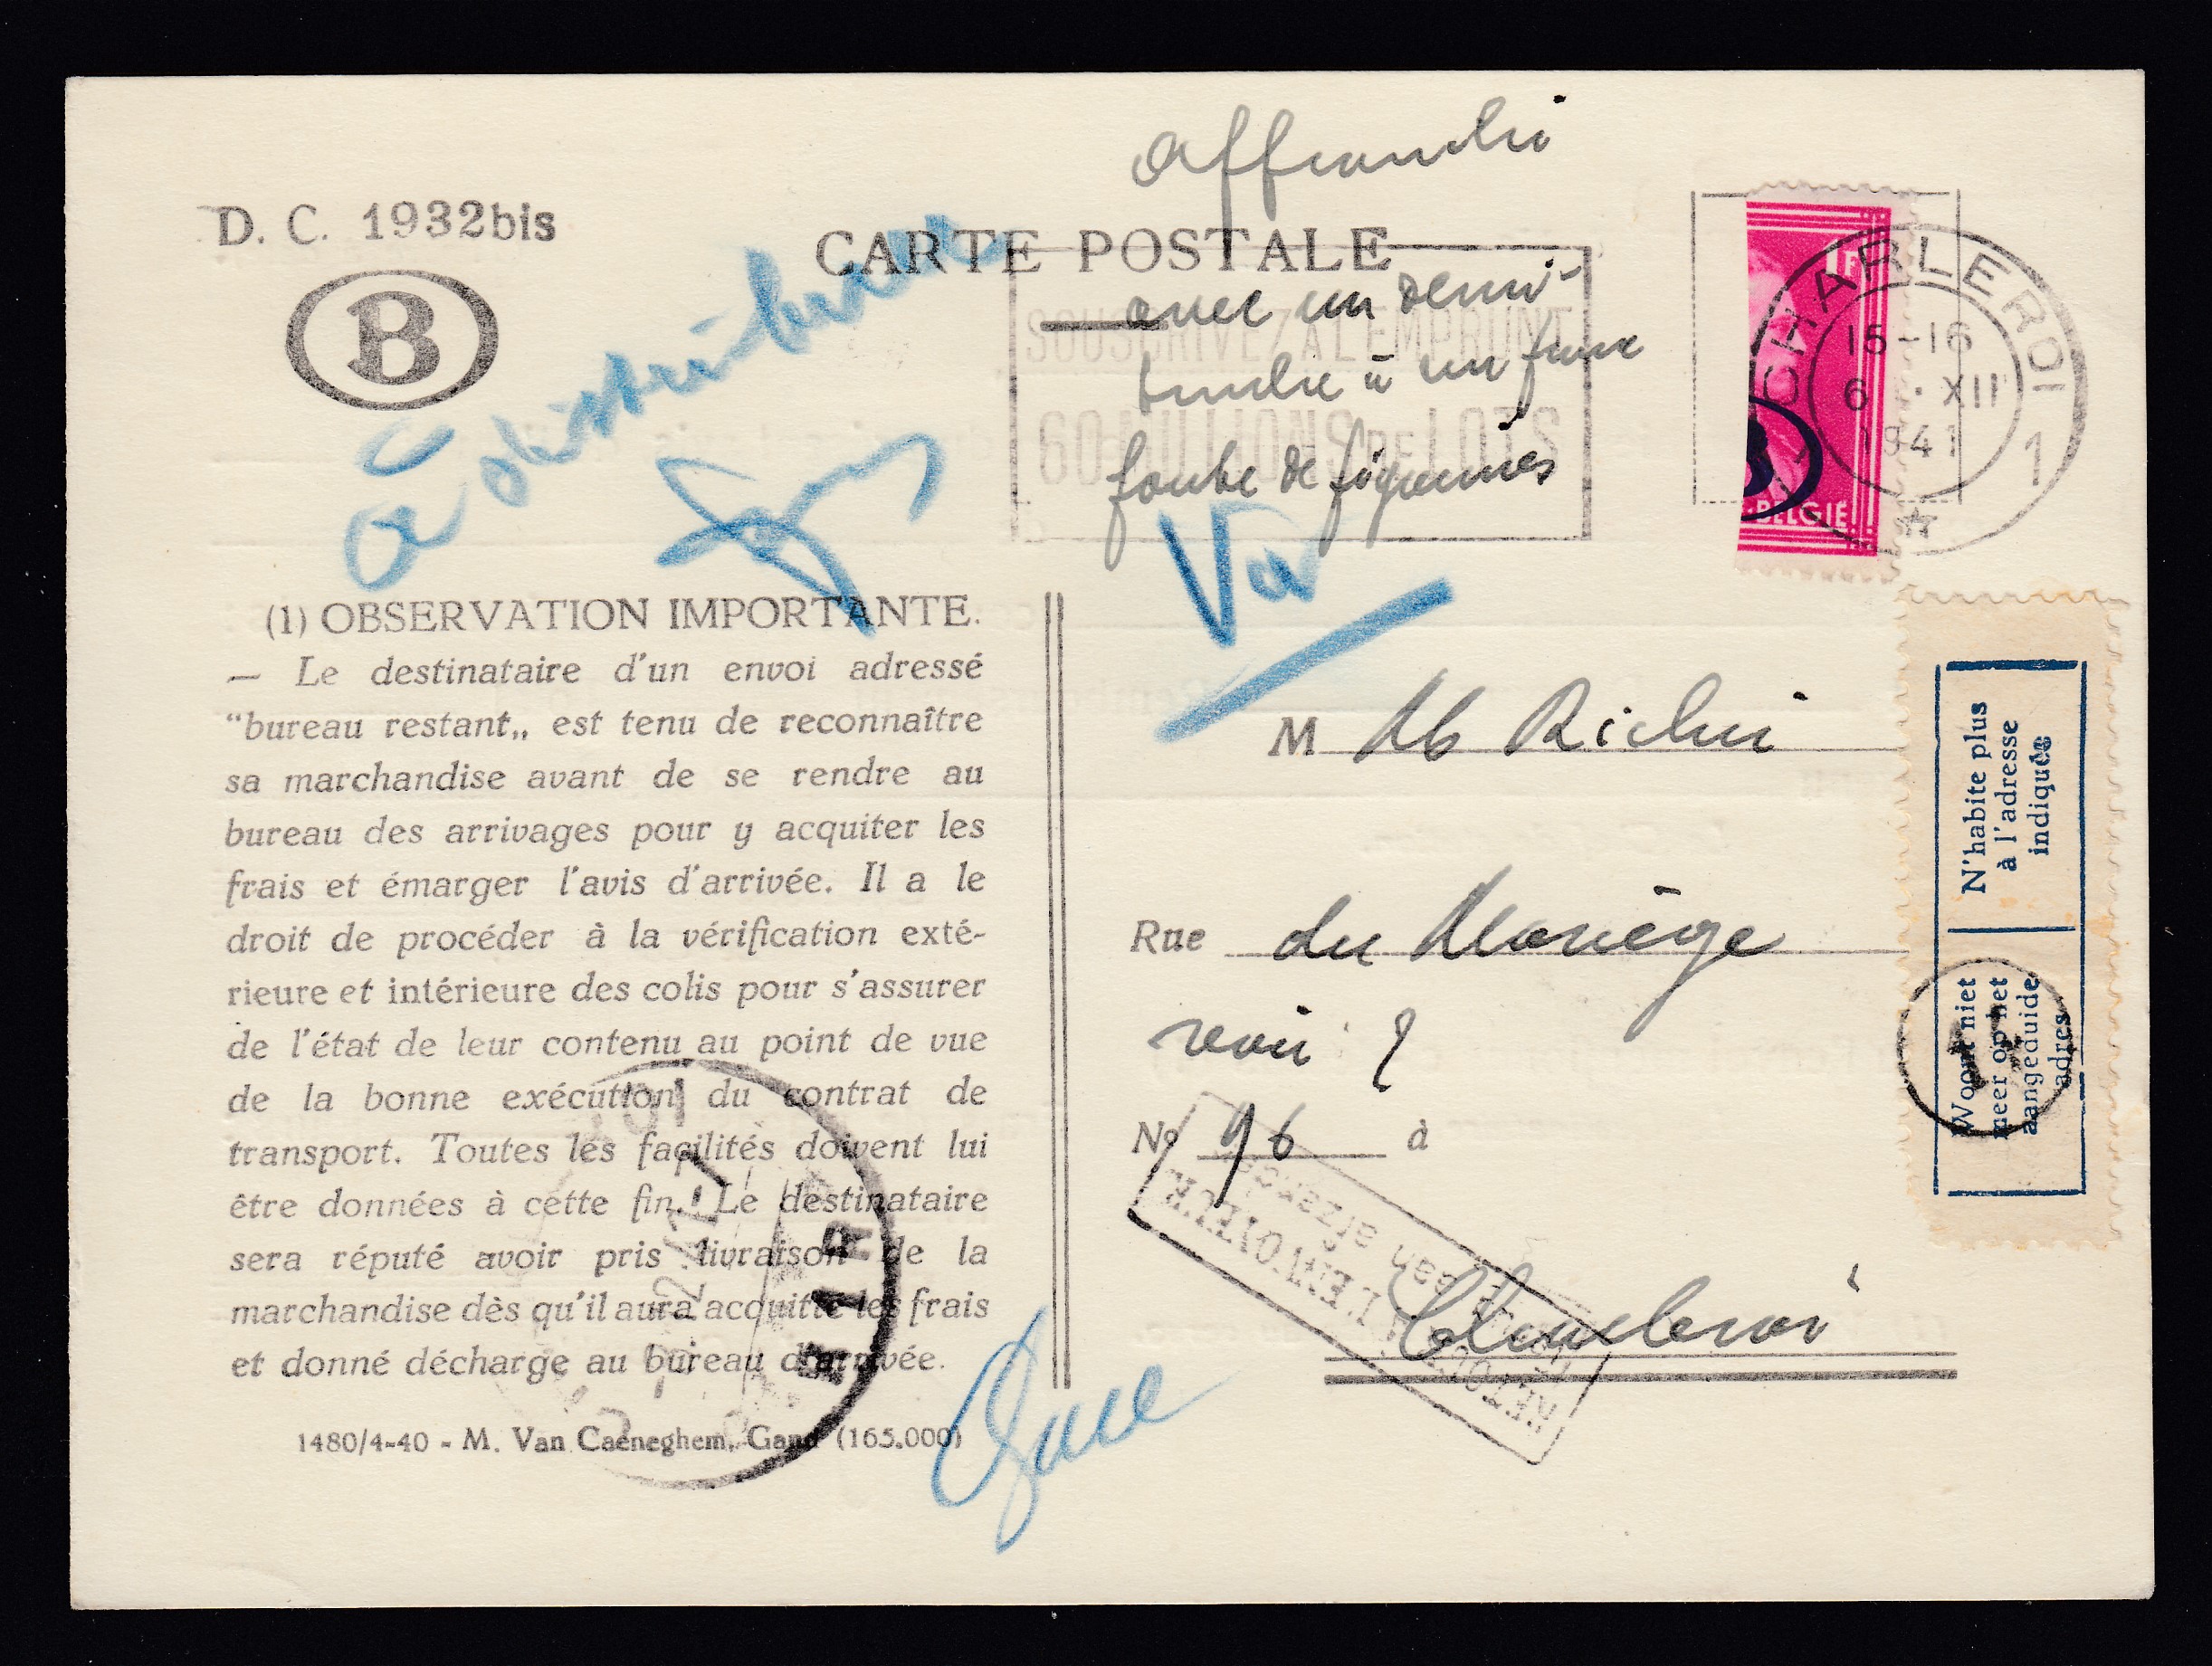 affranchi
D. C. 1932bis
CARTE POSTALE
B
avec un demi-
timbre à un franc
faute de figurines
SOUSCRIVEZ A L'EMPRUNT
60 MILLIONS DE LOTS
1F
BELGIË
CHARLEROI
15-16
6 · XII
1941
1
à
Voir
(1) OBSERVATION IMPORTANTE.
— Le destinataire d'un envoi adressé
“bureau restant„ est tenu de reconnaître
sa marchandise avant de se rendre au
bureau des arrivages pour y acquiter les
frais et émarger l'avis d'arrivée. Il a le
droit de procéder à la vérification exté-
rieure et intérieure des colis pour s'assurer
de l'état de leur contenu au point de vue
de la bonne exécution du contrat de
transport. Toutes les facilités doivent lui
être données à cette fin. Le destinataire
sera réputé avoir pris livraison de la
marchandise dès qu'il aura acquitté les frais
et donné décharge au bureau d'arrivée.
1480/4-40 - M. Van Caeneghem, Gand (165.000)
M
Rue du
No 96 à
Charleroi
RETOUR A L'ENVOYEUR
aan afzender
N'habite plus
à l'adresse
indiquée
Woont niet
meer op het
aangeduide
adres